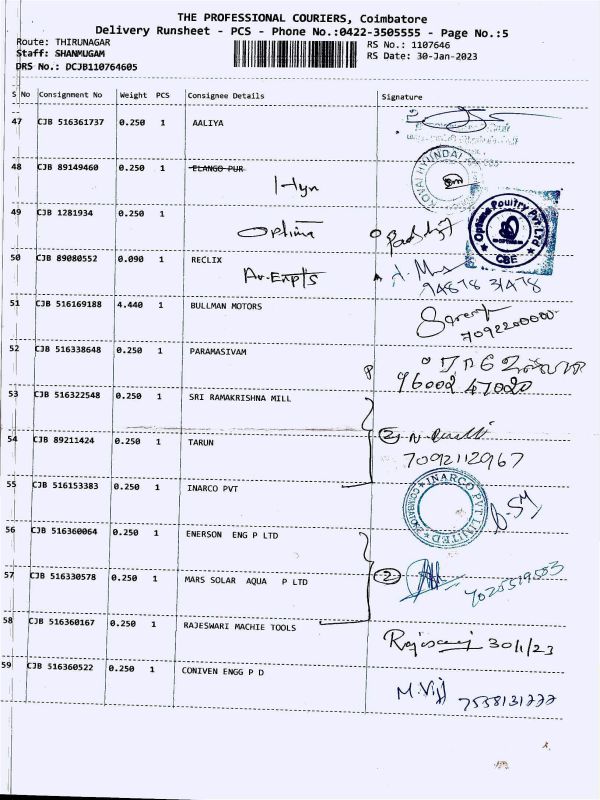 THE PROFESSIONAL COURIERS, Coimbatore
Delivery Runsheet - PCS - Phone No.:0422-3505555 - Page No.:5
Route: THIRUNAGAR
RS No.: 1107646
Staff: SHANMUGAM
RS Date: 30-Jan-2023
DRS No.: DCJB110764605
S No Consignment No Weight PCS Consignee Details Signature
47 CJB 516361737 0.250 1 AALIYA
48 CJB 89149460 0.250 1 ELANGO PUR
Hyn
KOVAI HYUNDAI
49 CJB 1281934 0.250 1
Optima
Optima Poultry Pvt Ltd
CBE
50 CJB 89080552 0.090 1 RECLIX
94878 31478
51 CJB 516169188 4.440 1 BULLMAN MOTORS
7092200000
52 CJB 516338648 0.250 1 PARAMASIVAM
96002 47020
53 CJB 516322548 0.250 1 SRI RAMAKRISHNA MILL
54 CJB 89211424 0.250 1 TARUN
2
7092112967
55 CJB 516153383 0.250 1 INARCO PVT
INARCO PVT LIMITED
56 CJB 516360064 0.250 1 ENERSON ENG P LTD
57 CJB 516330578 0.250 1 MARS SOLAR AQUA P LTD
2
58 CJB 516360167 0.250 1 RAJESWARI MACHIE TOOLS
30/1/23
59 CJB 516360522 0.250 1 CONIVEN ENGG P D